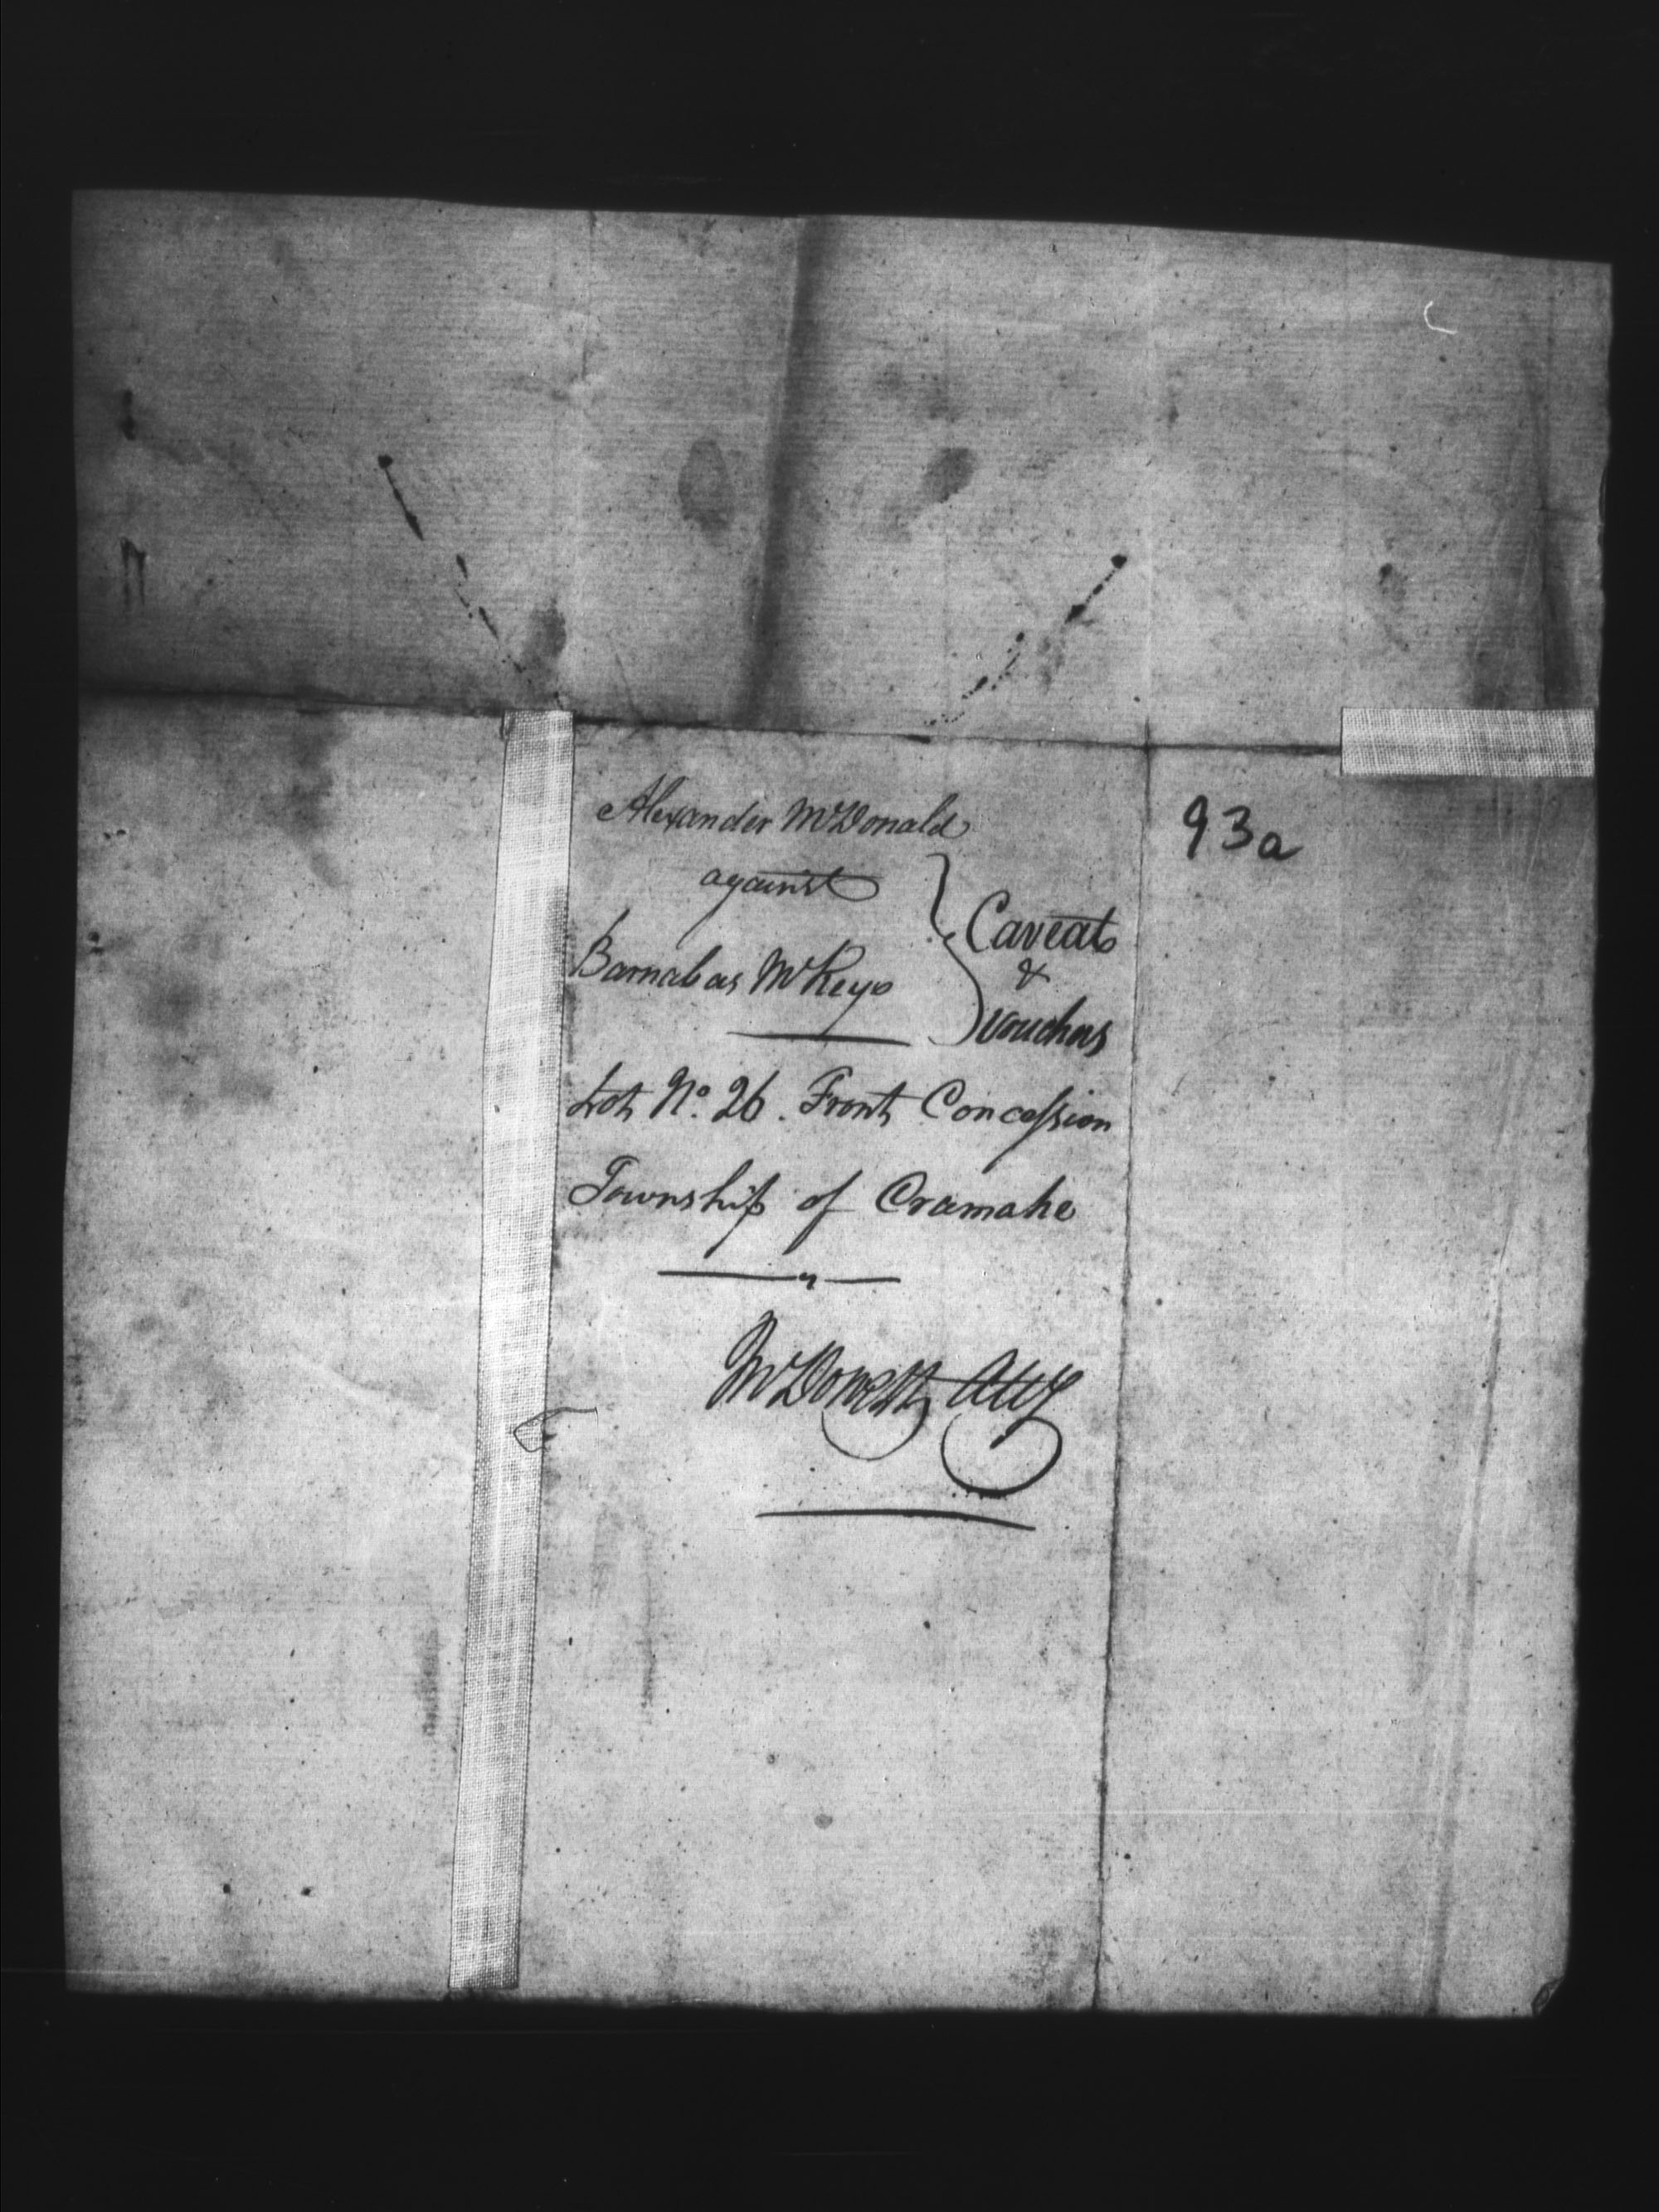 Alexander McDonald
against
Barnabas McKeys
Caveats
&
Vouchers
Lot No. 26. Front Concession
Township of Cramahe
McDonell Atty
93a